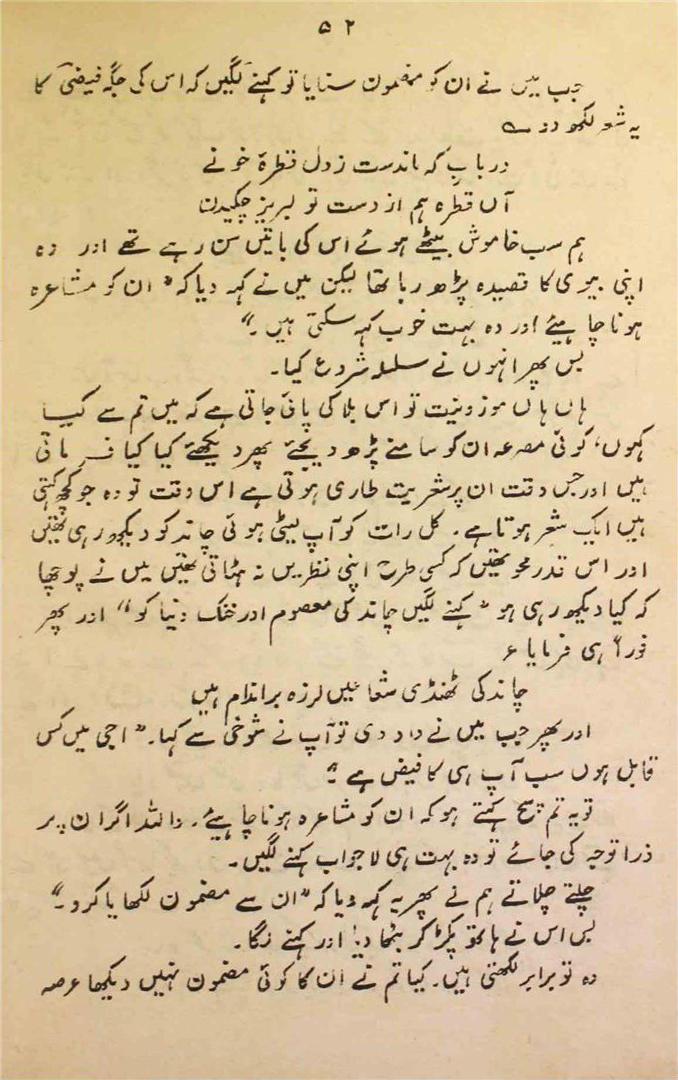 ۵۲
جب میں نے ان کو مضمون سنایا تو کہنے لگیں کہ اس کی جگہ فیضی کا
یہ شعر لکھ دو ؎
دریاب کہ ماندست ز دل قطرۂ خونے
آں قطرہ ہم از دست تو لبریز چکیدن
ہم سب خاموش بیٹھے ہوئے اس کی باتیں سن رہے تھے اور وہ
اپنی بیوی کا قصیدہ پڑھ رہا تھا لیکن میں نے کہہ دیا کہ "ان کو مشاعرہ
ہونا چاہیئے اور وہ بہت خوب کہہ سکتی ہیں۔"
بس پھر انہوں نے سلسلہ شروع کیا۔
ہاں ہاں موزونیت تو اس بلا کی پائی جاتی ہے کہ میں تم سے کیا
کہوں، کوئی مصرعہ ان کو سامنے پڑھ دیجئے پھر دیکھئے کیا کیا فرماتی
ہیں اور جس وقت ان پر شعریت طاری ہوتی ہے اس وقت تو وہ جو کچھ کہتی
ہیں ایک شعر ہوتا ہے۔ کل رات کو آپ لیٹی ہوئی چاند کو دیکھ رہی تھیں
اور اس قدر محو تھیں کہ کسی طرح اپنی نظریں نہ ہٹاتی تھیں میں نے پوچھا
کہ کیا دیکھ رہی ہو" کہنے لگیں چاند کی معصوم اور خنک دنیا کو" اور پھر
فوراً ہی فرمایا ع
چاند کی ٹھنڈی شعاعیں لرزہ براندام ہیں
اور پھر جب میں نے داد دی تو آپ نے شوخی سے کہا۔ "اجی میں کس
قابل ہوں سب آپ ہی کا فیض ہے"
تو یہ تم سچ کہتے ہو کہ ان کو مشاعرہ ہونا چاہیئے۔ واللہ اگر ان پر
ذرا توجہ کی جائے تو وہ بہت ہی لاجواب کہنے لگیں۔
چلتے چلاتے ہم نے پھر یہ کہہ دیا کہ "ان سے مضمون لکھایا کرو۔"
بس اس نے ہاتھ پکڑ کر بٹھا دیا اور کہنے لگا۔
وہ تو برابر لکھتی ہیں۔ کیا تم نے ان کا کوئی مضمون نہیں دیکھا عرصہ